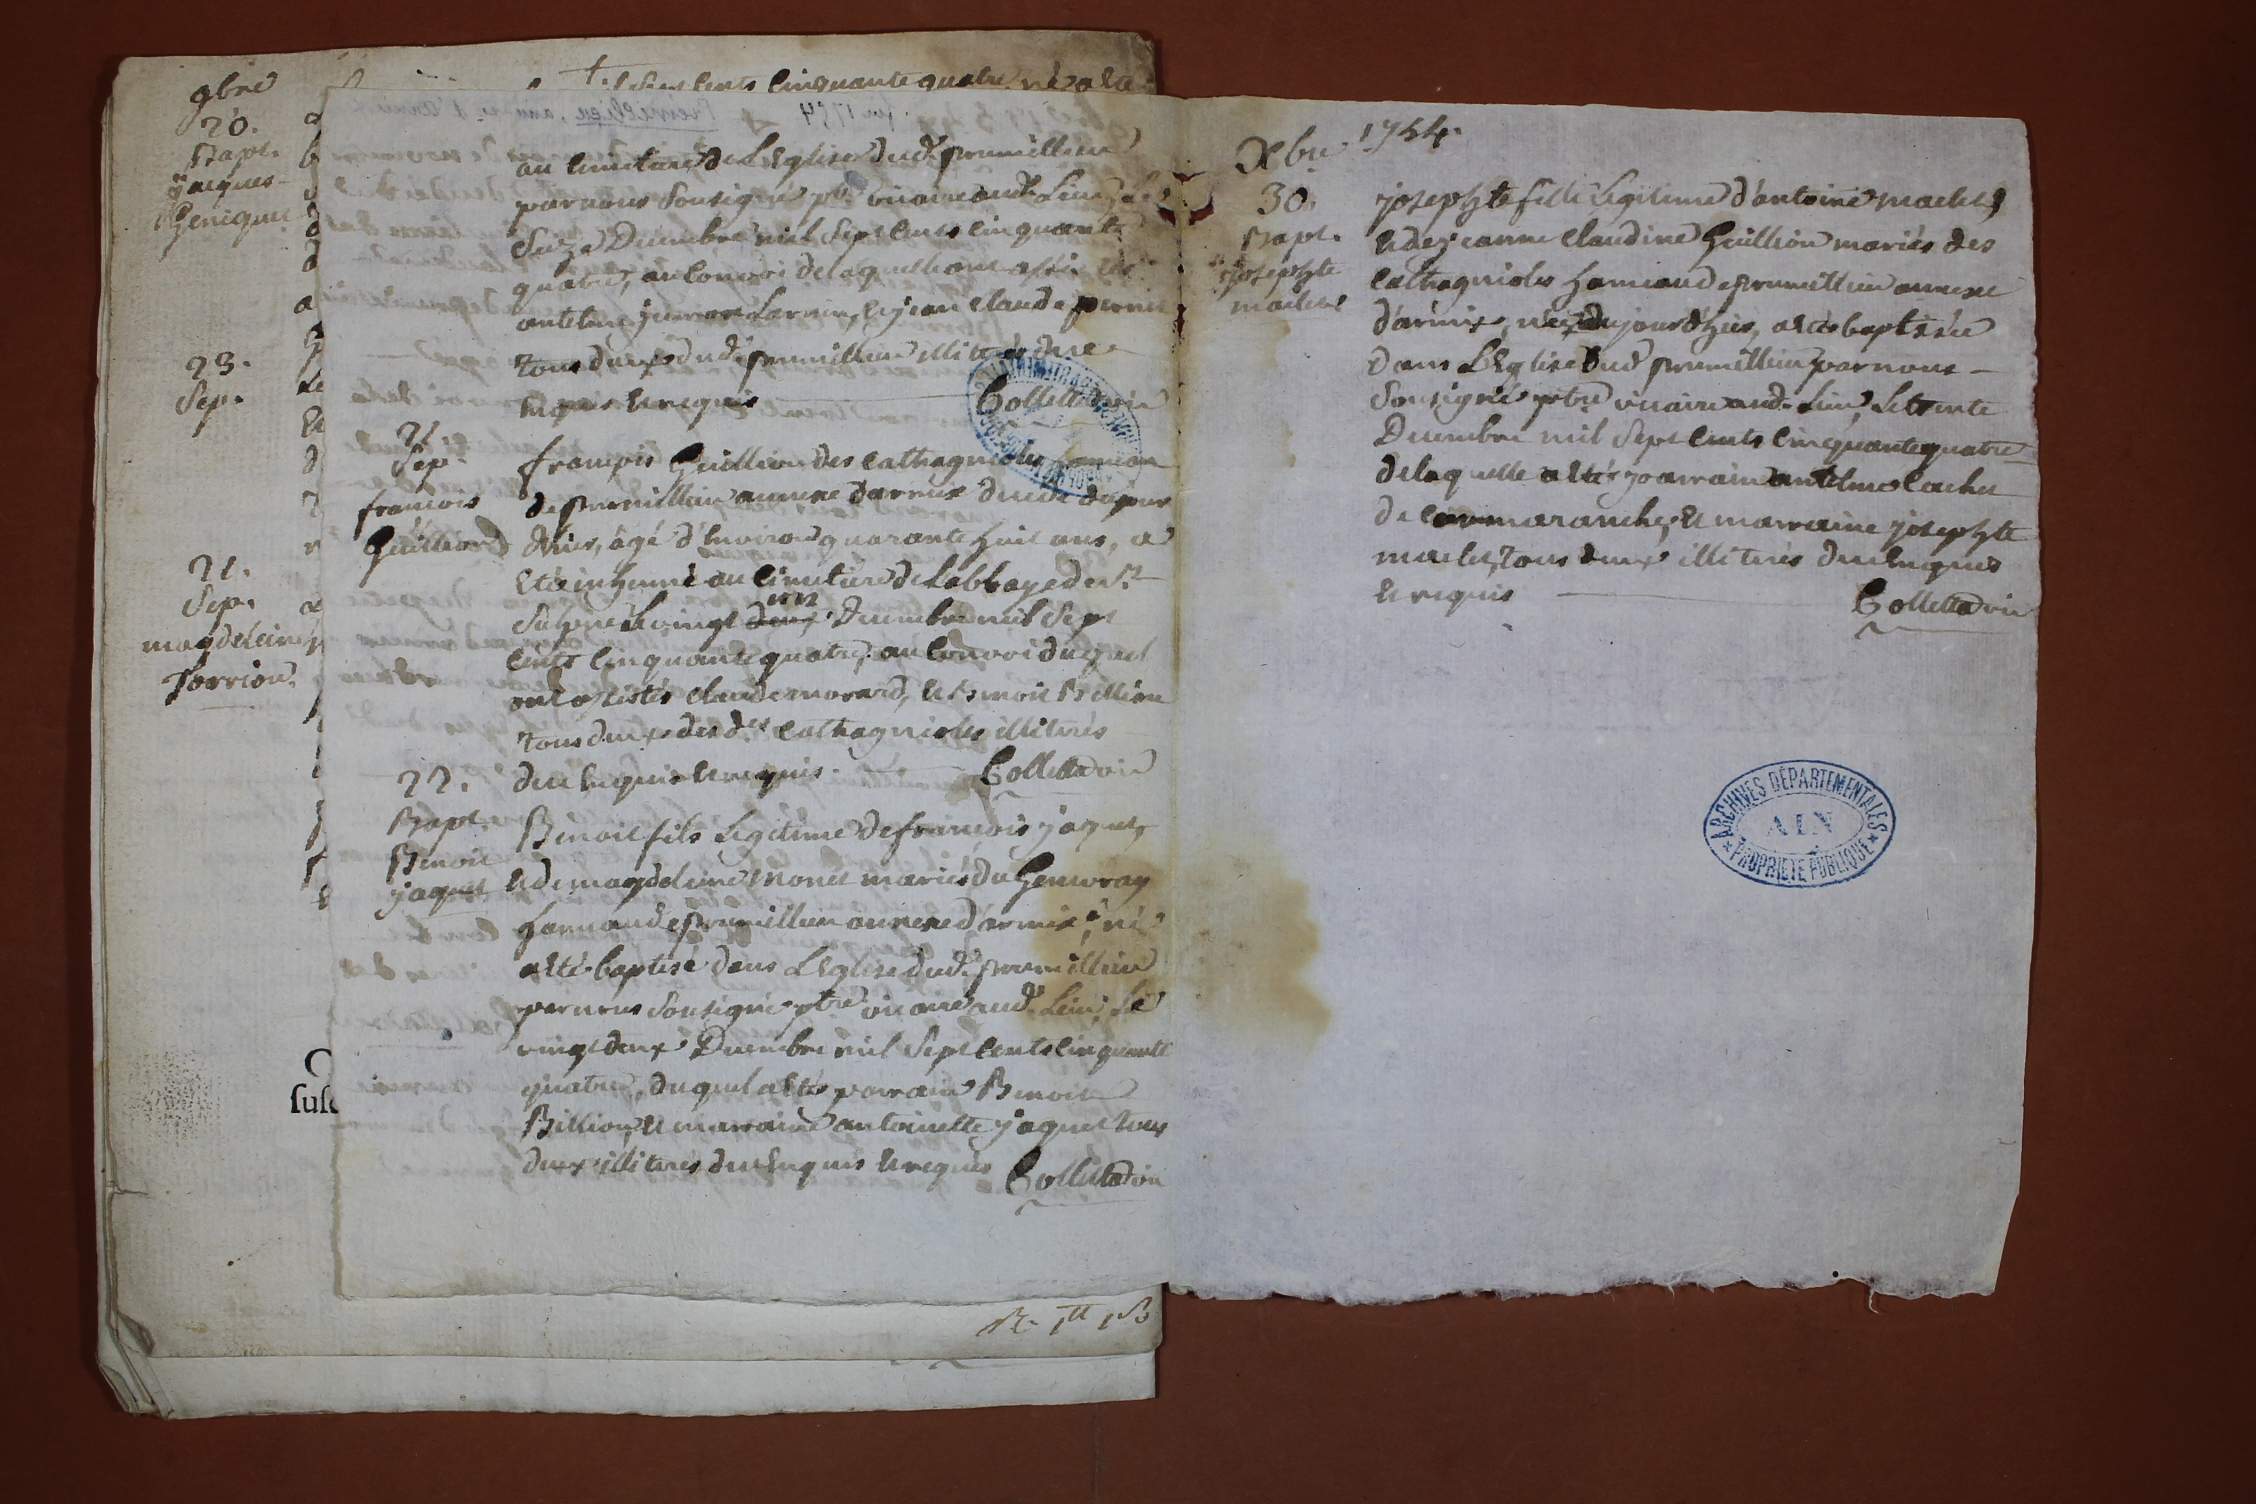 9bre
20.
Bapt.
jacques
23.
Sep.
21.
Sep.
magdeleine
Torrion
sept cents cinquante quatre, né a été
au cimetiere de L'Eglise dud. prumillieu
par nous Sousigné ptre vicaire aud. Lieu, le
Seize Decembre mil Sept Cents Cinquante
quatre, au Convoi de laquelle ont assisté
antelme Larrin, et jean claude
tous deux dud. prumillieu illiterés de ce
enquis et requis Colletta vic
21
Sep.
francois
Guillion
françois Guillion des Cathagnioles hameau
de prumillieu annexe d'armix decedé dujour
d'hier, âgé d'Environ quarante huit ans, a
Eté inhumé au Cimetiere de l'abbaye de St
Sulpice le vingt deux un Decembre mil Sept
Cents Cinquante quatre, au Convoi duquel
ont assistés claude morard, et Benoit Billion
tous deux des dts Cathagnioles illiterés
deu enquis et requis. Colletta vic
22.
Bapt.
Benoit
jaquet
Benoit fils Legitime de francois jaquet,
et de magdeleine monet mariés du Genevray
hameau de prumillieu annexe d'armix, né
a eté baptisé dans L'Eglise dud. prumillieu
par nous Sousigné ptre vicaire aud. Lieu, Le
vingt deux Decembre mil Sept Cents Cinquante
quatre, duquel a eté parrain Benoit
Billion, et marraine antoinette jaquet tous
deux illiterés deu enquis et requis Colletta vic
Xbre 1754.
30.
Bapt.
josephte
maclet
josephte fille Legitime d'antoine maclet,
et de jeanne Claudine Guillion mariés des
Cathagnioles hameau de prumillieu annexe
d'armix, née du jourd'hier, a eté baptisée
dans L'Eglise dud. prumillieu par nous
Sousigné ptre vicaire aud. Lieu, Le trente
Decembre mil Sept Cents Cinquante quatre
de laquelle a eté parrain antelme Cachet
de Commaranche, et marraine josephte
maclet, tous deux illiterés deu enquis
et requis Colletta vic
ARCHIVES DÉPARTEMENTALES
AIN
PROPRIÉTÉ PUBLIQUE